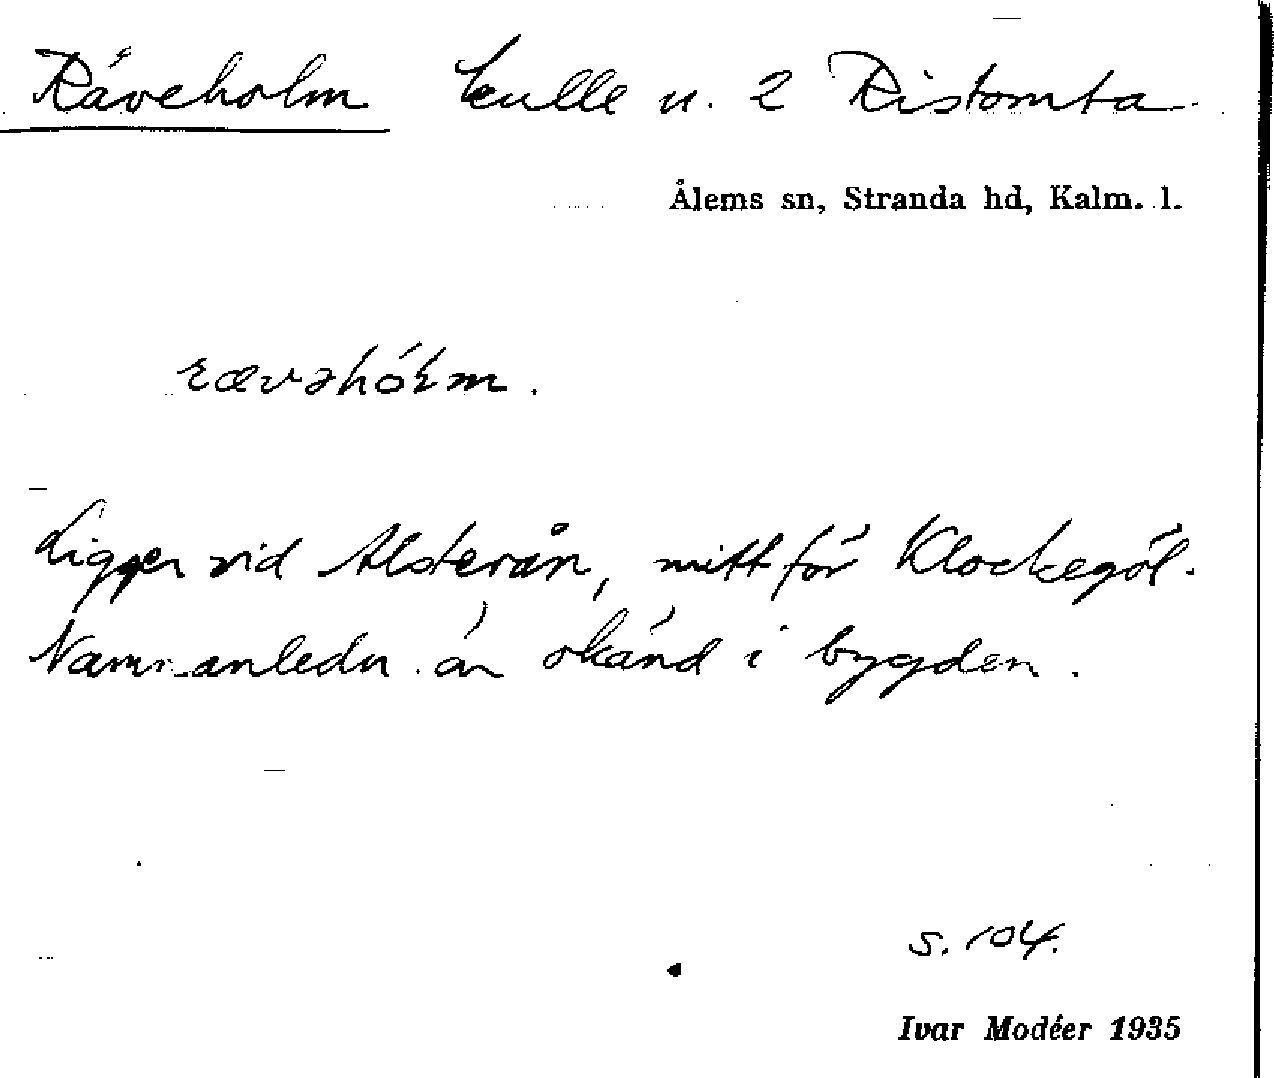 Räveholm kulle u. 2 Ristomta
Ålems sn, Stranda hd, Kalm. l.
rævəhólm.
Ligger vid Alsterån, mitt för Klockegöl.
Namnanledn. är okänd i bygden.
s. 104.
Ivar Modéer 1935